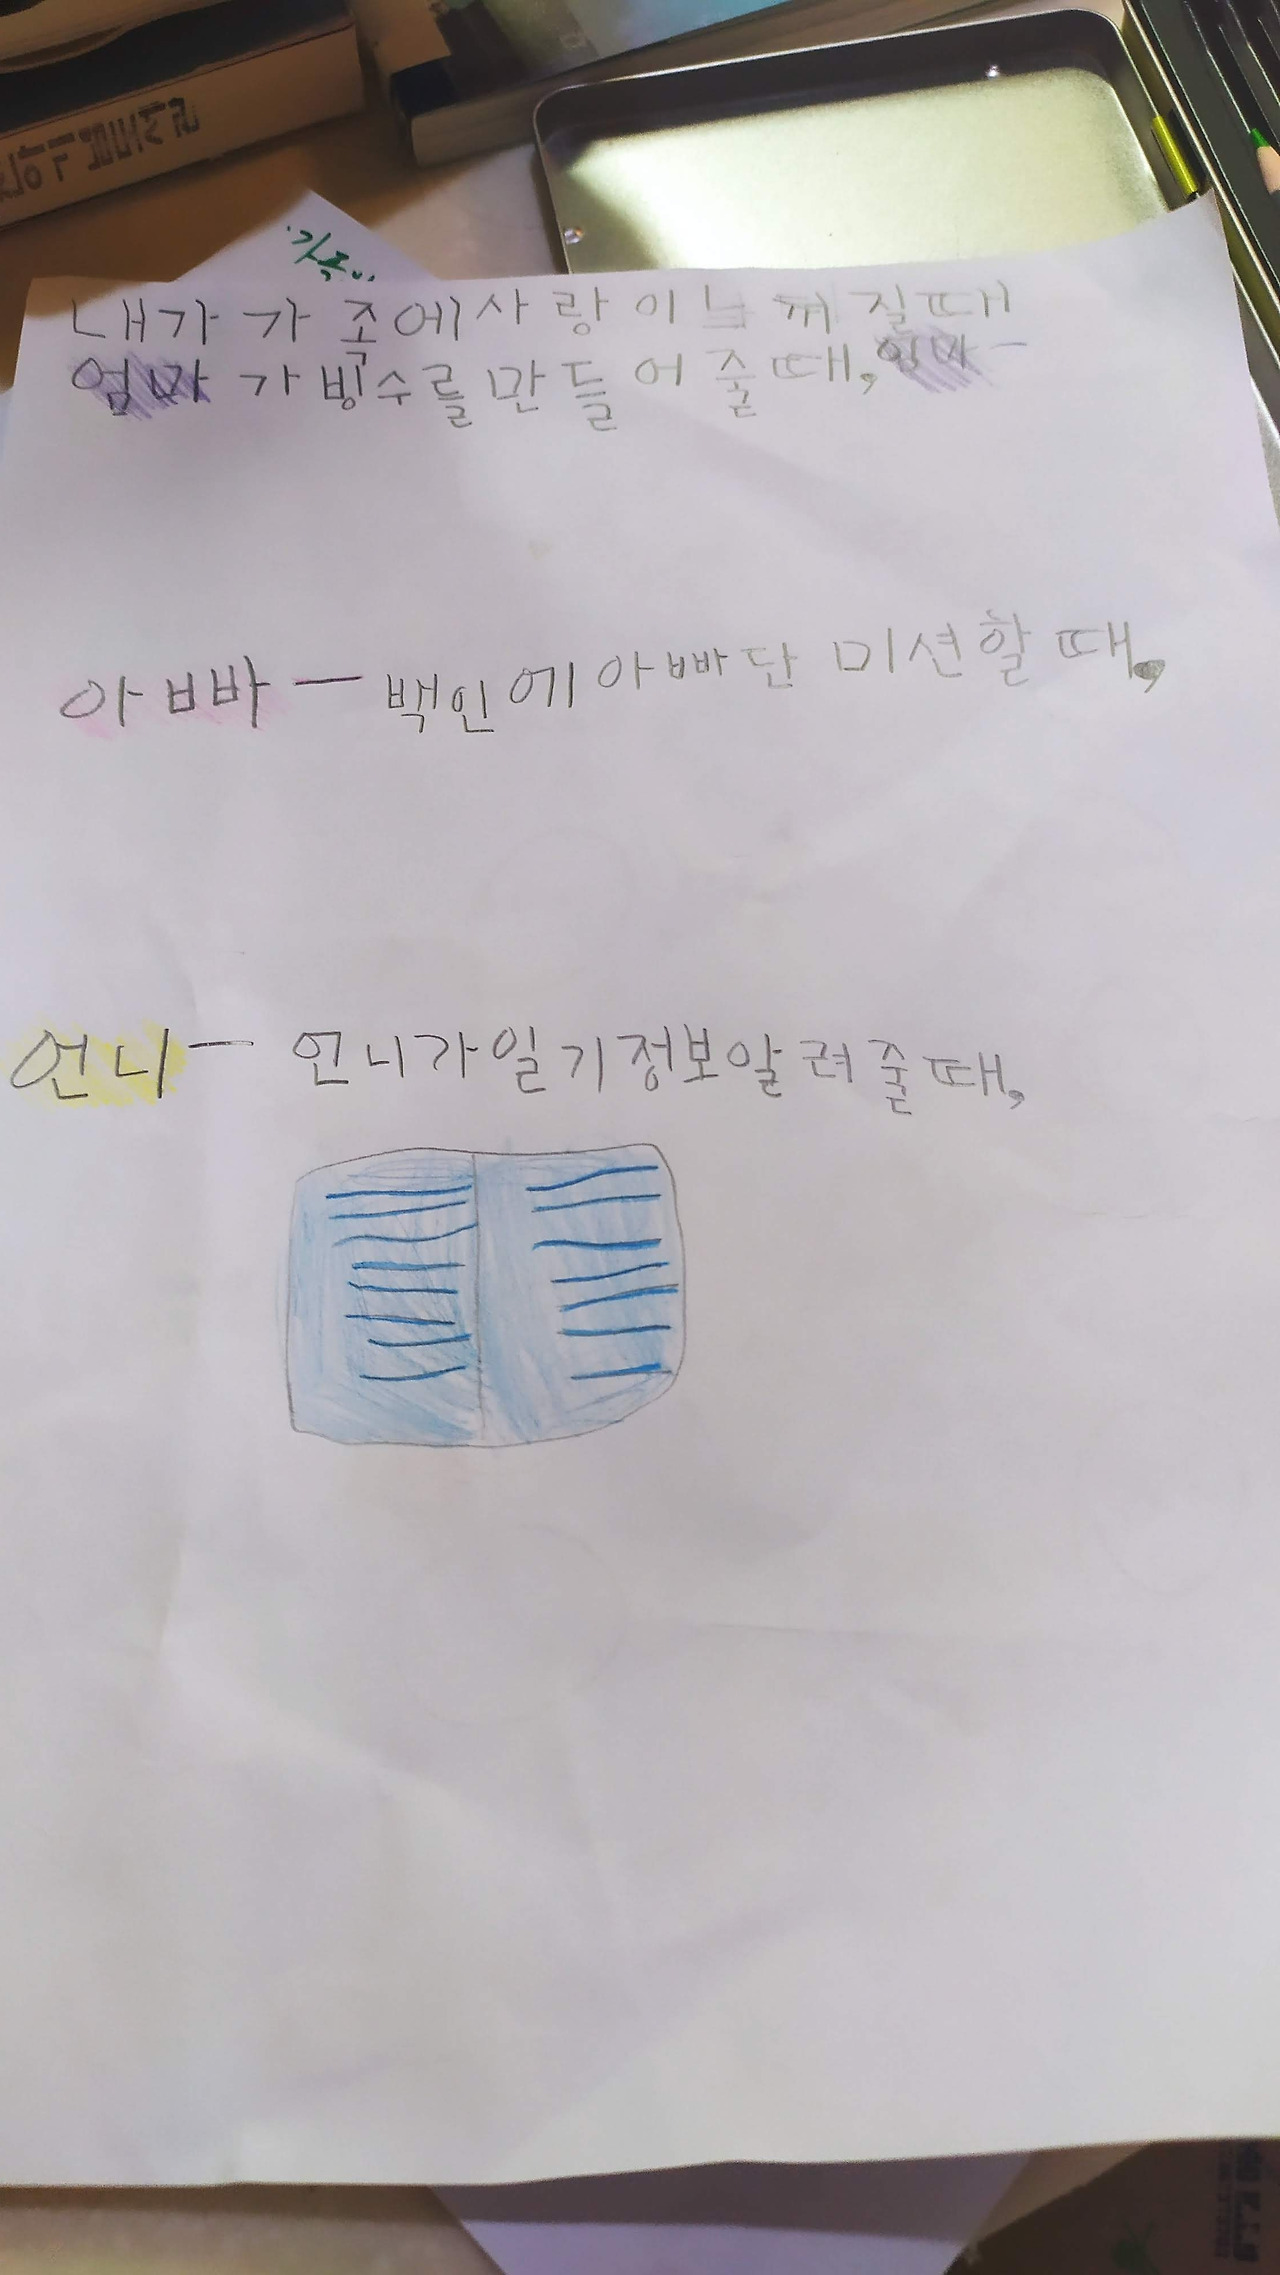 가족
내가 가족에사랑이 느껴질때
엄마가빙수를만들어줄때, 엄마-
아빠 — 백인에아빠단 미션할때,
언니 — 언니가일기정보알려줄때,